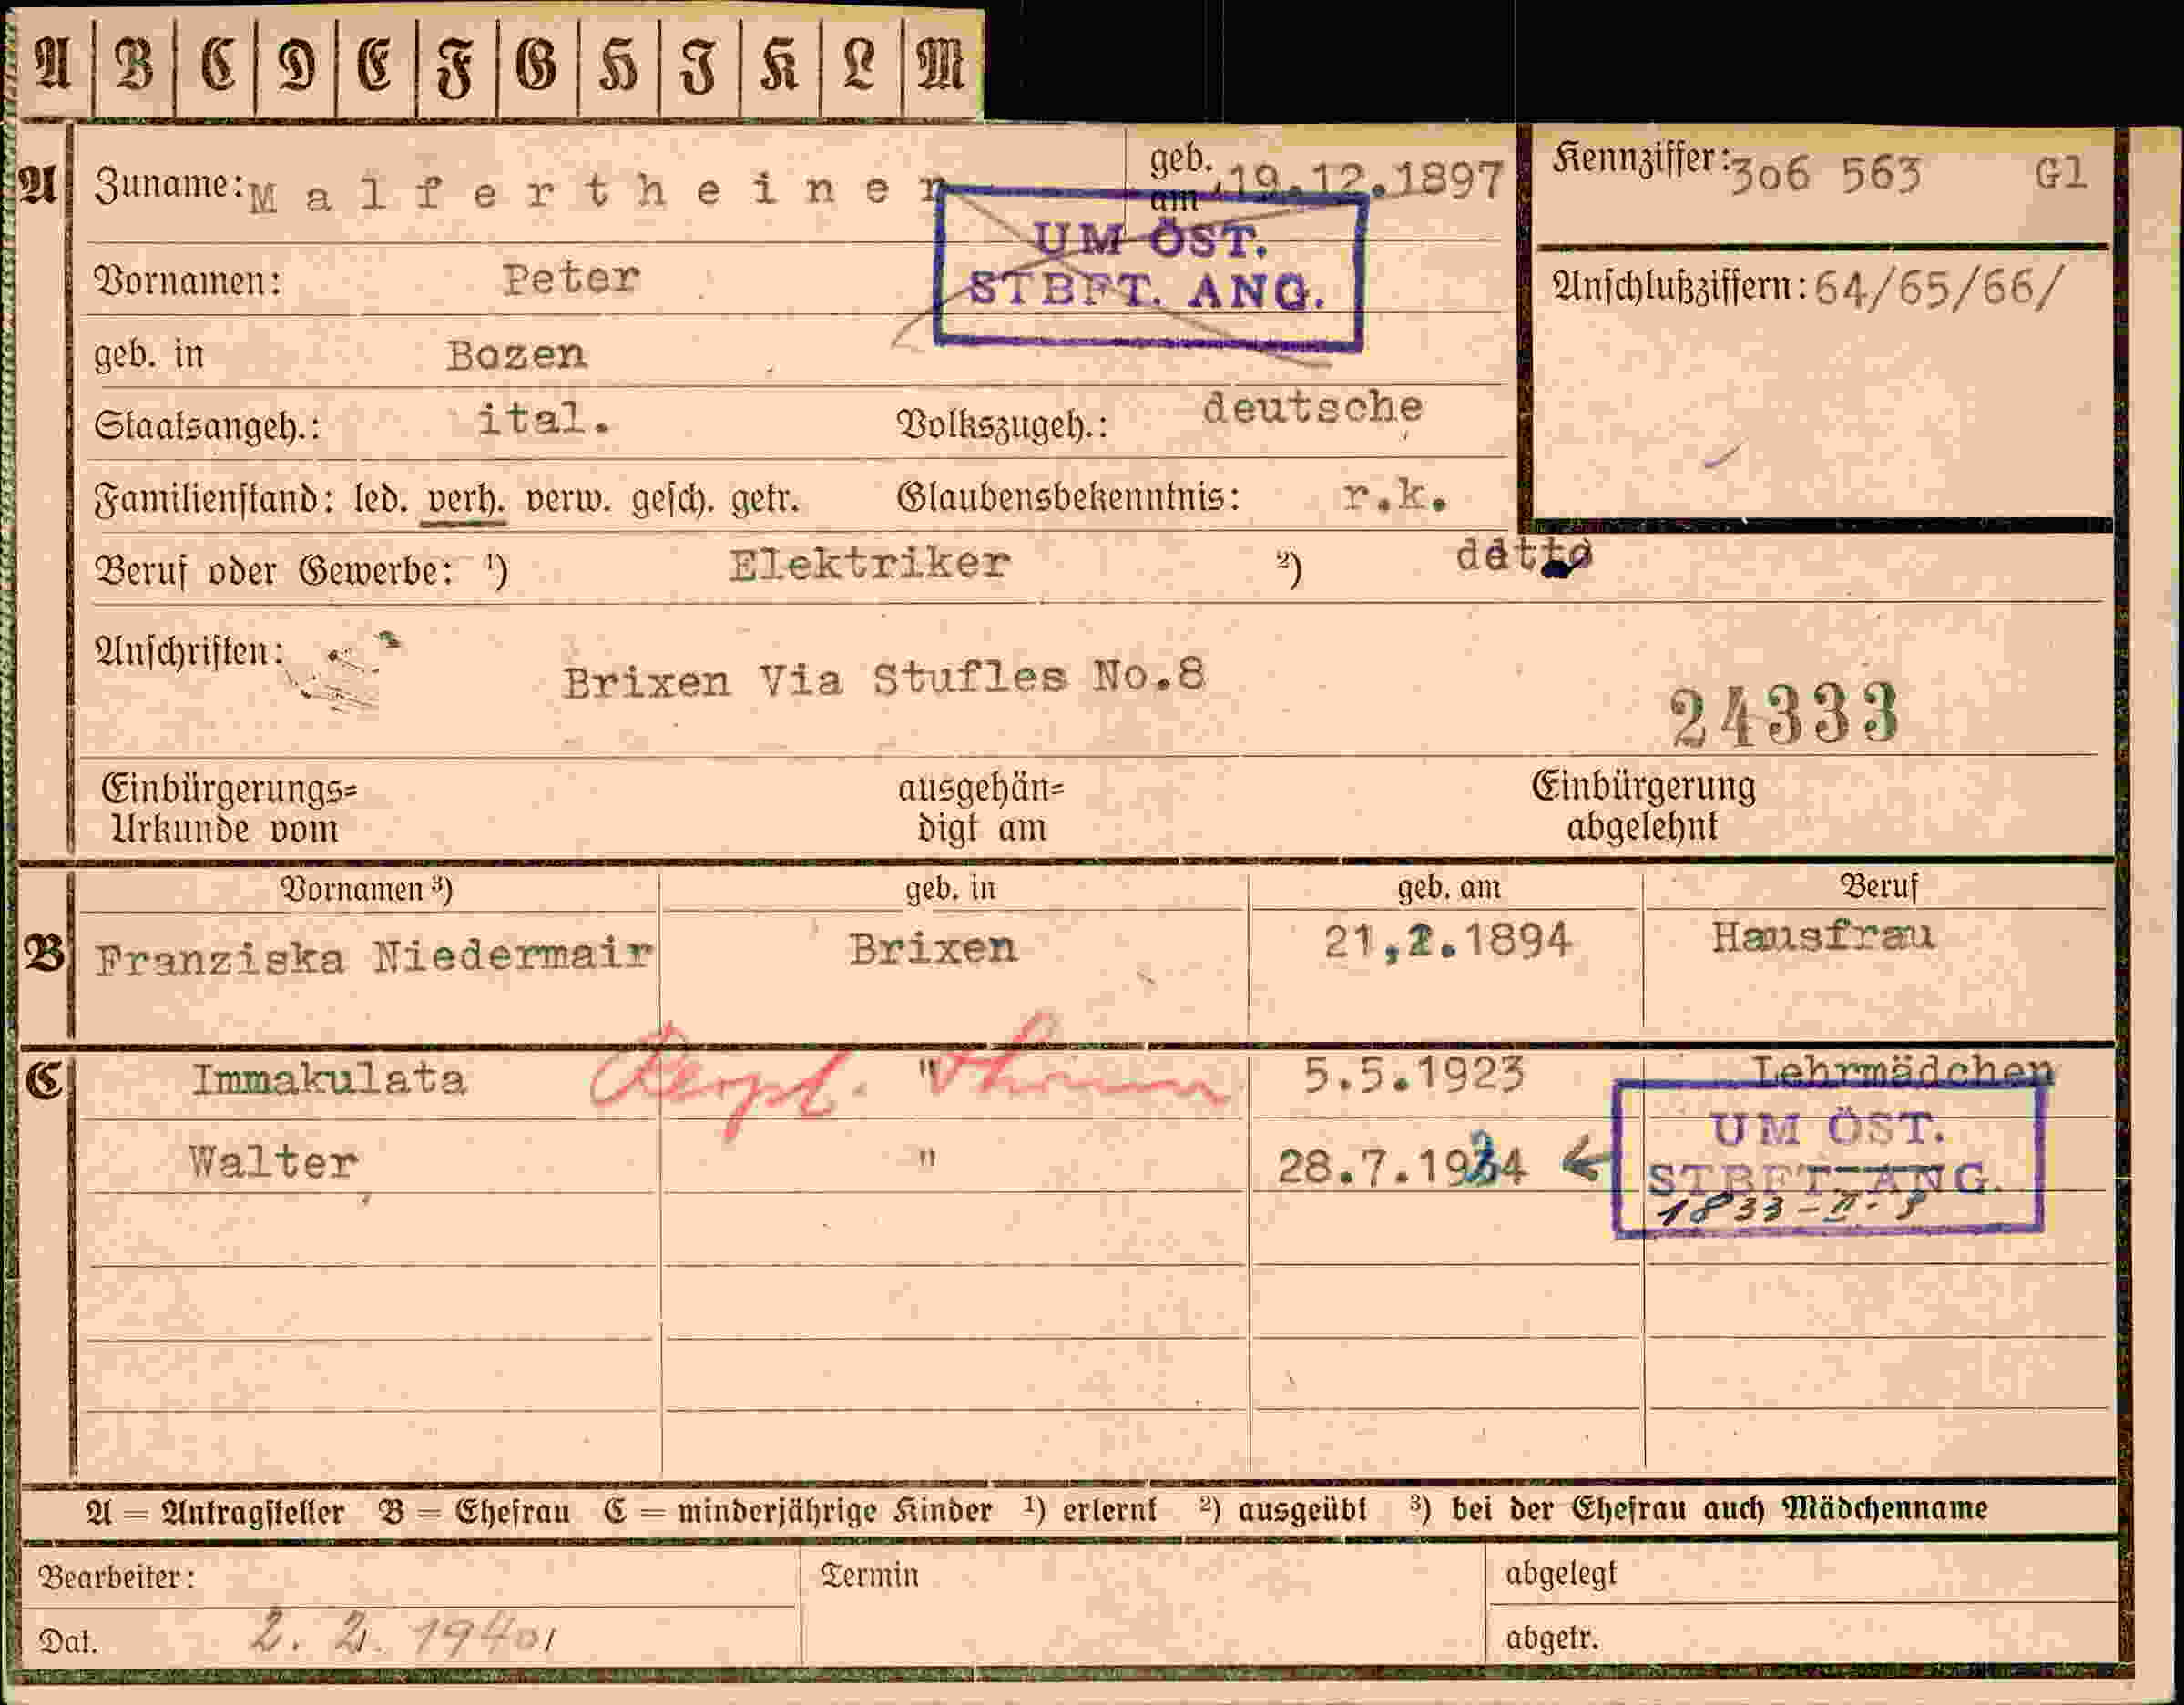 A B C D E F G H I K L M
A Zuname: Malfertheiner geb. am 19.12.1897 Kennziffer: 306 563 Gl
UM ÖST.
STBFT. ANG.
Vornamen: Peter Anschlußziffern: 64/65/66/
geb. in Bozen
Staatsangeh.: ital. Volkszugeh.: deutsche
Familienstand: led. verh. verw. gesch. getr. Glaubensbekenntnis: r.k.
Beruf oder Gewerbe: ¹) Elektriker ²) detto
Anschriften: Brixen Via Stufles No.8
24333
Einbürgerungs= Urkunde vom ausgehän= digt am Einbürgerung abgelehnt
Vornamen ³) geb. in geb. am Beruf
B Franziska Niedermair Brixen 21,2.1894 Hausfrau
C Immakulata " 5.5.1923 Lehrmädchen
Walter " 28.7.1924
UM ÖST.
STBFT. ANG.
1833-II-
A = Antragsteller B = Ehefrau C = minderjährige Kinder ¹) erlernt ²) ausgeübt ³) bei der Ehefrau auch Mädchenname
Bearbeiter: Termin abgelegt
Dat. 2. 2. 1940 abgetr.